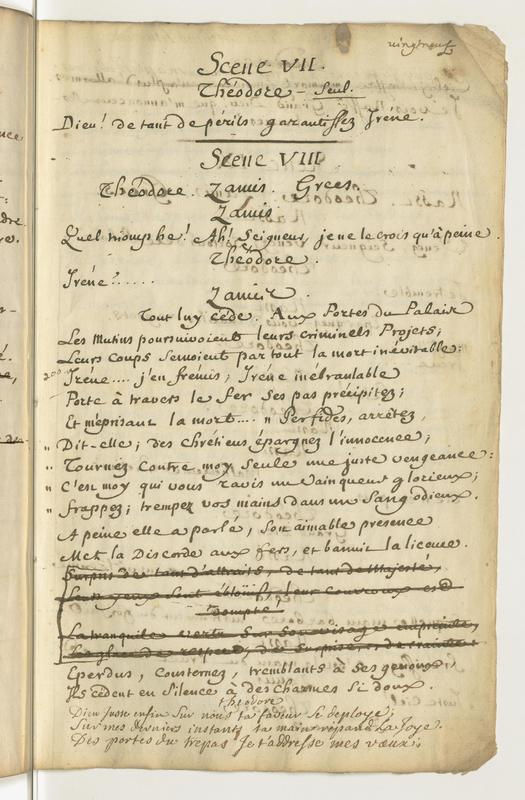 vingtneuf
Scene VII.
Théodore - Seul.
Dieu! de tant de périls garantissez Iréne.
Scene VIII
Théodore. Zamis. Grecs.
Zamis
Quel triomphe! Ah! Seigneur, je ne le crois qu'à peine.
Théodore.
Iréne?......
Zamis.
Tout luy céde. Aux Portes du Palais
Les Mutins poursuivoient leurs criminels Projets;
Leurs coups semoient partout la mort inévitable:
Iréne.... j'en frémis; Iréne inébranlable
Porte à travers le fer ses pas précipitez;
Et méprisant la mort.... " Perfides, arrêtez,
" Dit-elle; des Chrétiens épargnez l'innocence;
" Tournez contre moy seule une juste vengeance:
" C'est moy qui vous ravis un Vainqueur glorieux;
" frappez; trempez vos mains dans un Sang odieux.
A peine elle a parlé, Son aimable presence
Met la Discorde aux fers, et bannit la licence.
Surpris de tant d'attraits, de tant de Majesté,
Leurs yeux sont éblouis, leur couroux est
dompté;
La tranquile vertu Sur Son visage empreinte,
de respect, de Surprise, et de crainte
Eperdus, consternez, tremblants à Ses genoux,
Ils cédent en Silence à des charmes Si doux.
théodore
Dieu juste enfin Sur nous ta faveur Se deploye;
Sur mes derniers instants ta main répand La Joye.
Des portes du trepas Je t'addresse mes vœux;